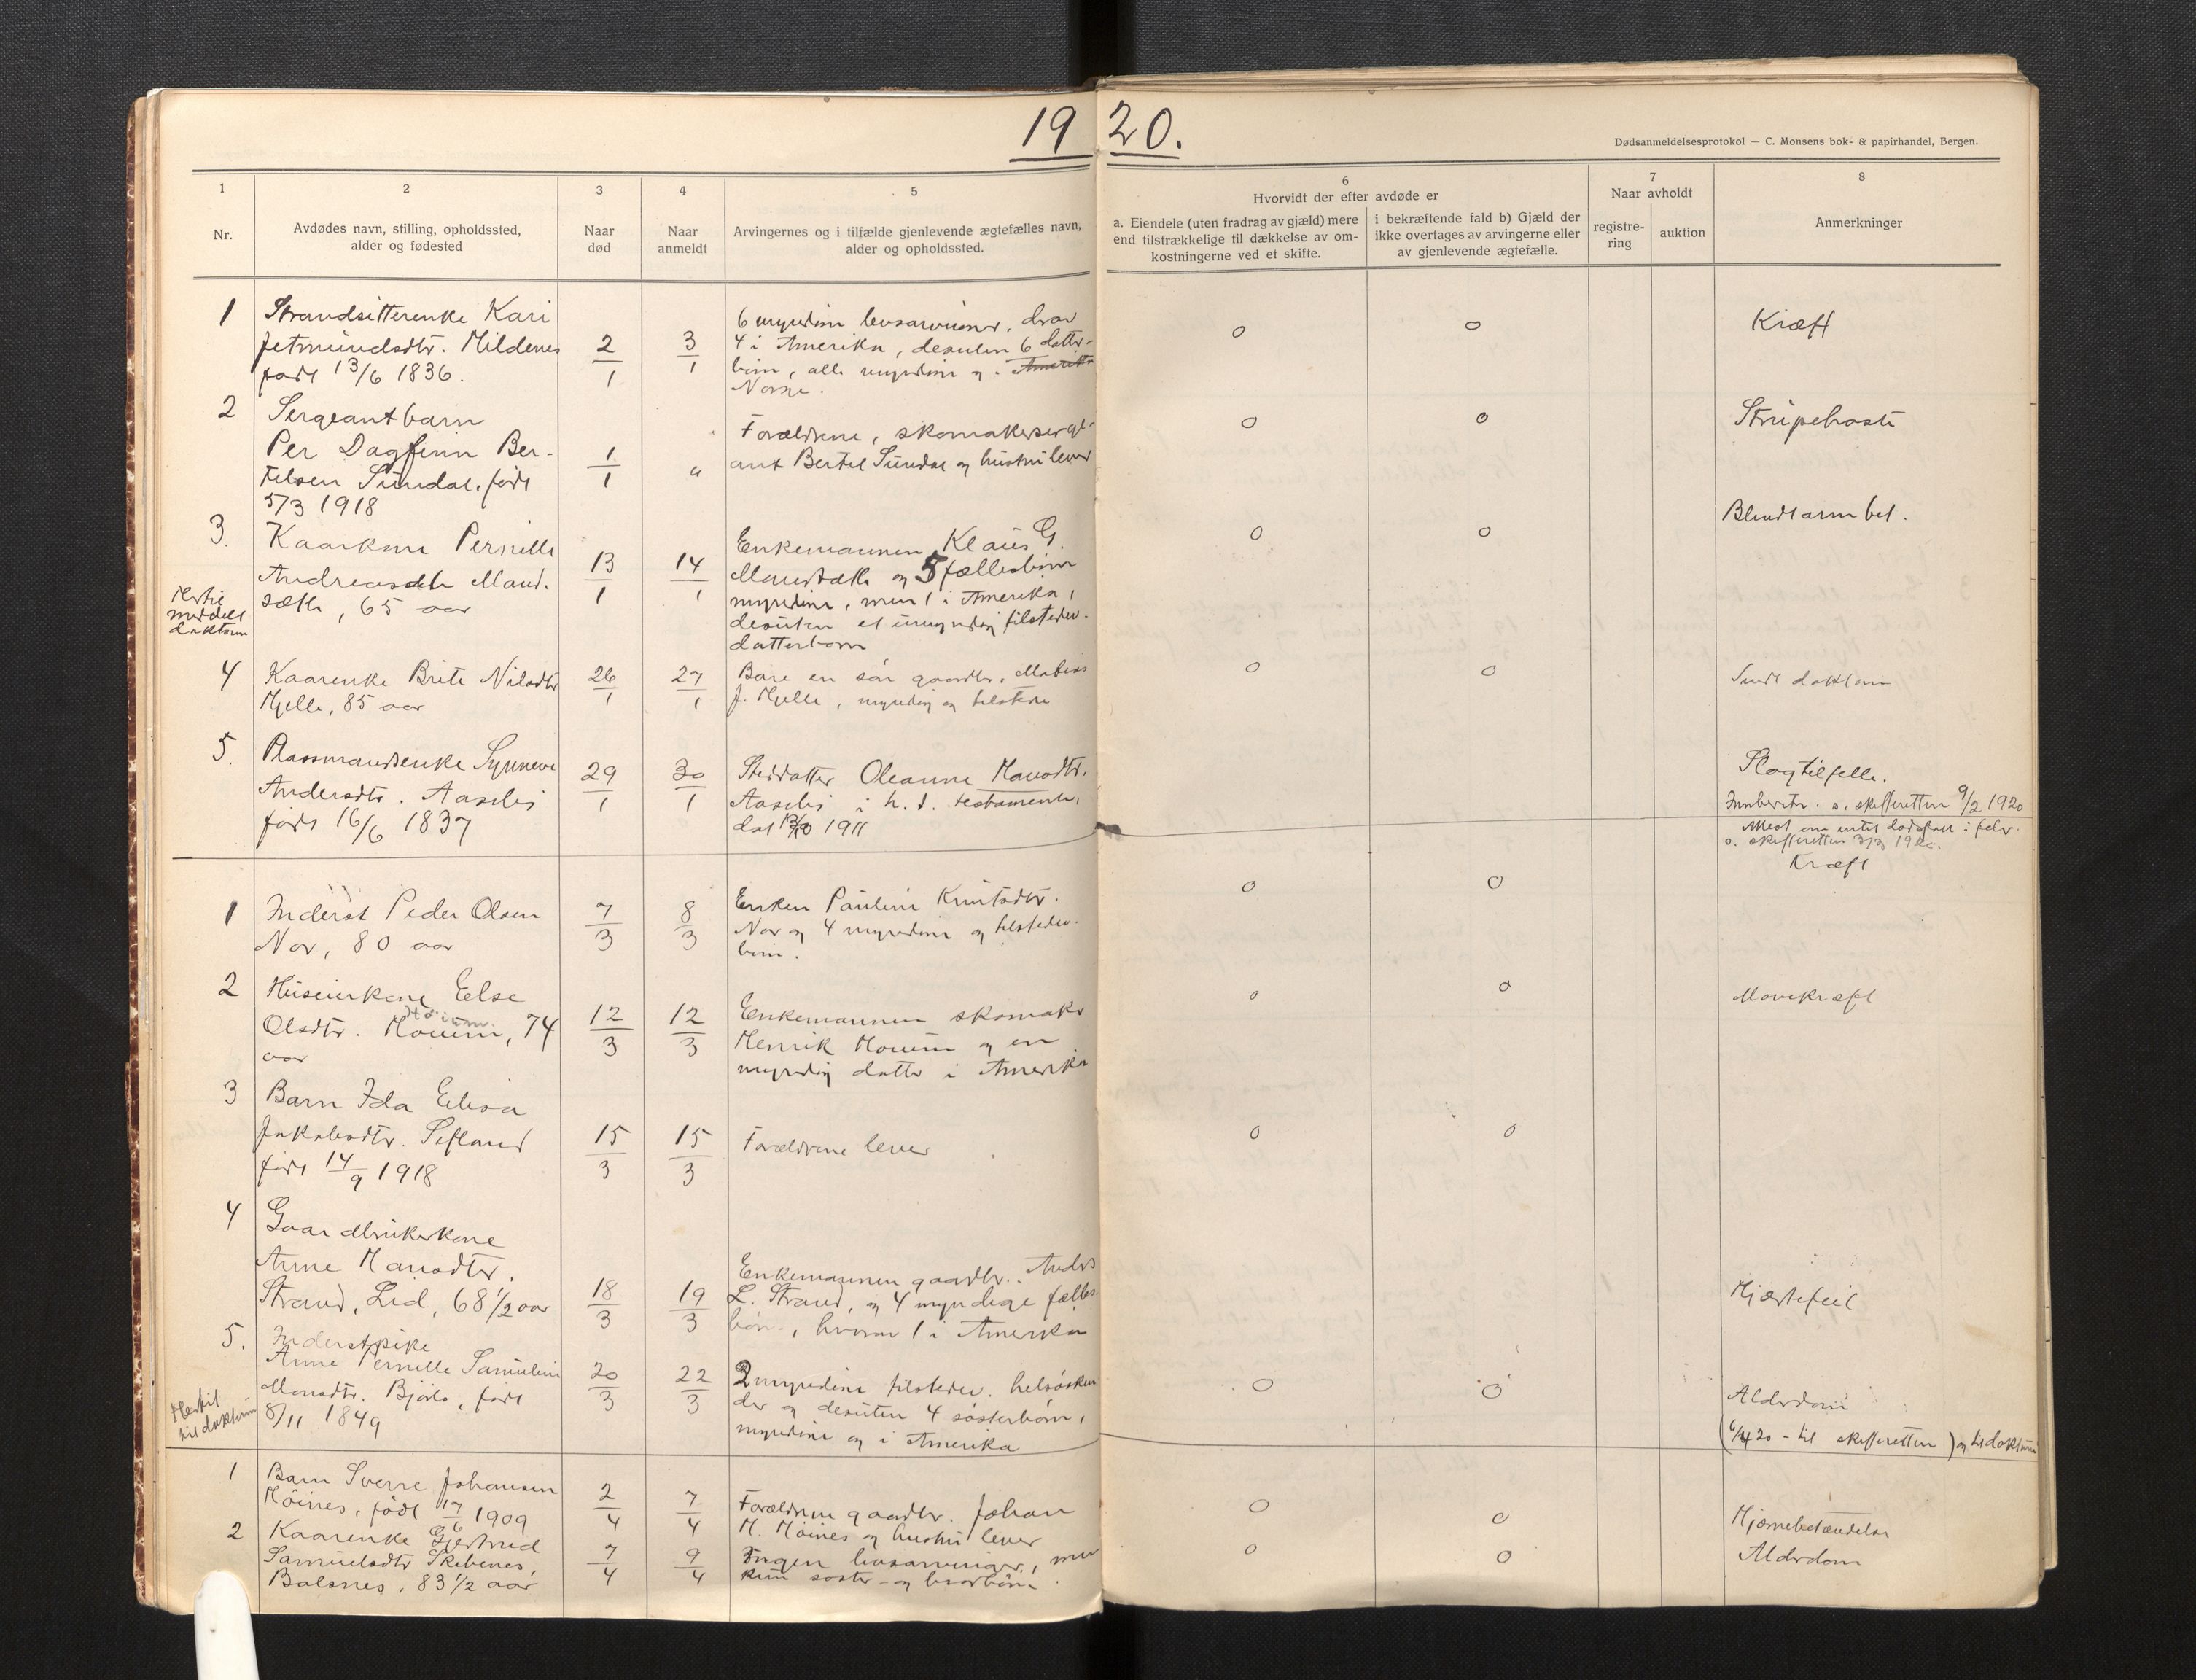 19 20.
Dødsanmeldelsesprotokol — C. Monsens bok- & papirhandel, Bergen.
1
2
3
4
5
6
7
8
Nr.
Avdødes navn, stilling, opholdssted,
alder og fødested
Naar
død
Naar
anmeldt
Arvingernes og i tilfælde gjenlevende ægtefælles navn,
alder og opholdssted.
Hvorvidt der efter avdøde er
a. Eiendele (uten fradrag av gjæld) mere
end tilstrækkelige til dækkelse av om-
kostningerne ved et skifte.
i bekræftende fald b) Gjæld der
ikke overtages av arvingerne eller
av gjenlevende ægtefælle.
Naar avholdt
registre-
ring
auktion
Anmerkninger
1
Strandsitterenke Kari
Jetmundsdtr. Hildenes
født 13/6 1836.
2/1
3/1
6 myndine livsarvinger, hvor
4 i Amerika, desuten 6 datter-
børn, alle myndine og i Amerika
Norge.
o
o
Kræft
2
Sergeantbarn
Per Dagfinn Ber-
telsen Sundal, født
5/3 1918
1/1
"
Forældrene, skomakersergе-
ant Bertel Sundal og hustru lever
o
o
Strupehoste
3.
Kaarkone Pernille
Andreasdtr Maud-
sæth, 65 aar
13/1
14/1
Enkemannen Klaus G.
og 5 fællesbørn
myndine, men 1 i Amerika,
desuten et umyndig tilstedev.
datterbarn
o
o
Blindtarmbet.
meddelt
doktoren
4
Kaarenke Brite Nilsdtr
Hjelle, 85 aar
26/1
27/1
Bare en søn gaardbr. Mabias
J. Hjelle, myndig og tilstede
o
o
Sendt doktoren
5.
Plassmandsenke Synneve
Andersdtr. Aaseli
født 16/6 1837
29/1
30/1
Steddatter Oleanne Hansdtr.
i h. t. testamente,
dat 1911
Slagtilfelle.
Innberetn. s. skifteretten 9/2 1920
Meld. om intet dødsfall i febr.
s. skifteretten 3/3 1920.
1
Inderst Peder Olsen
Nor, 80 aar
7/3
8/3
Enken Pauline Knutsdtr.
Nor og 4 myndine og tilstedev.
børn.
o
o
Kræft
2
Huseierkone Else
Olsdtr. Houum, 74
aar
12/3
12/3
Enkemannen skomaker
Henrik Houum og en
myndig datter i Amerika
o
o
Mavekræft
3
Barn Ida Elisa
Jakobsdtr. Sefland
født 14/9 1918
15/3
15/3
Forældrene lever
o
o
4
Gaardbrukerkone
Anne Hansdtr.
Strand, Lid, 68 1/2 aar
18/3
19/3
Enkemannen gaardbr. Anders
L. Strand, og 4 myndige fælles-
børn, hvorav 1 i Amerika
Hjærtefeil
5.
Inderstpike
Anne Pernelle Samuline
Monsdtr. Bjørlo, født
8/11 1849
20/3
22/3
2 myndine tilstedev. helsøsken
der og desuten 4 søsterbørn,
myndine og i Amerika
o
o
Alderdom
(6/4 20 - til skifteretten) og til doktoren
til doktoren
1
Barn Sverre Johansen
Høines, født 17/6 1909
2/4
7/4
Forældrene gaardbr. Johan
H. Høines og hustru lever
o
o
Hjernebetændelse
2
Kaarenke Gjertrud
Samuelsdtr Skibenes,
Balsnes, 83 1/2 aar
7/4
9/4
Ingen livsarvinger, men
kun søster- og brorbørn.
o
o
Alderdom